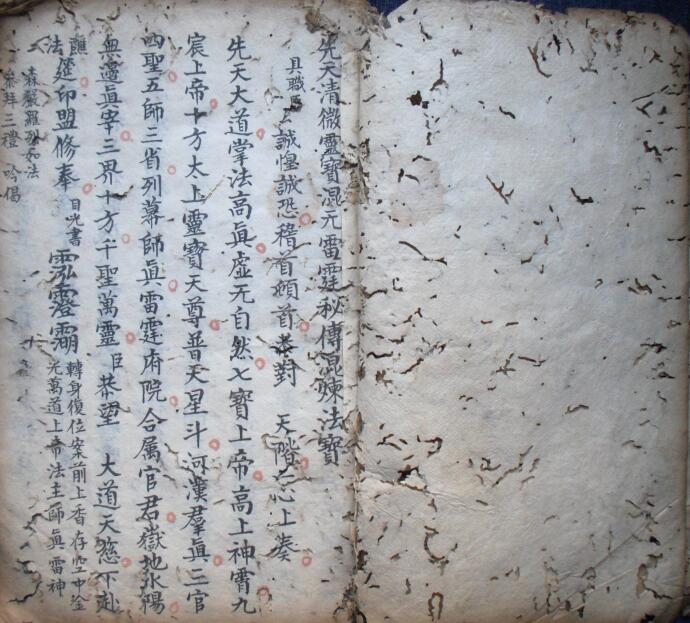 先天清微靈寶混元雷霆秘傳混煉法寶
具職臣 誠惶誠恐稽首頓首恭對 天階 心上奏
先天大道掌法高真虛无自然七寶上帝高上神霄九
宸上帝十方太上靈寶天尊普天星斗河漢羣真三官
四聖五師三省列幕師真雷霆府院合属官君嶽地水陽
無邊真宰三界十方千聖萬靈臣恭望 大道天慈下赴
醮筵印盟修奉 目光書
法
轉身復位案前上香存空中金
光萬道上帝法主師真雷神
森嚴羅列如法
參拜三禮 吟偈